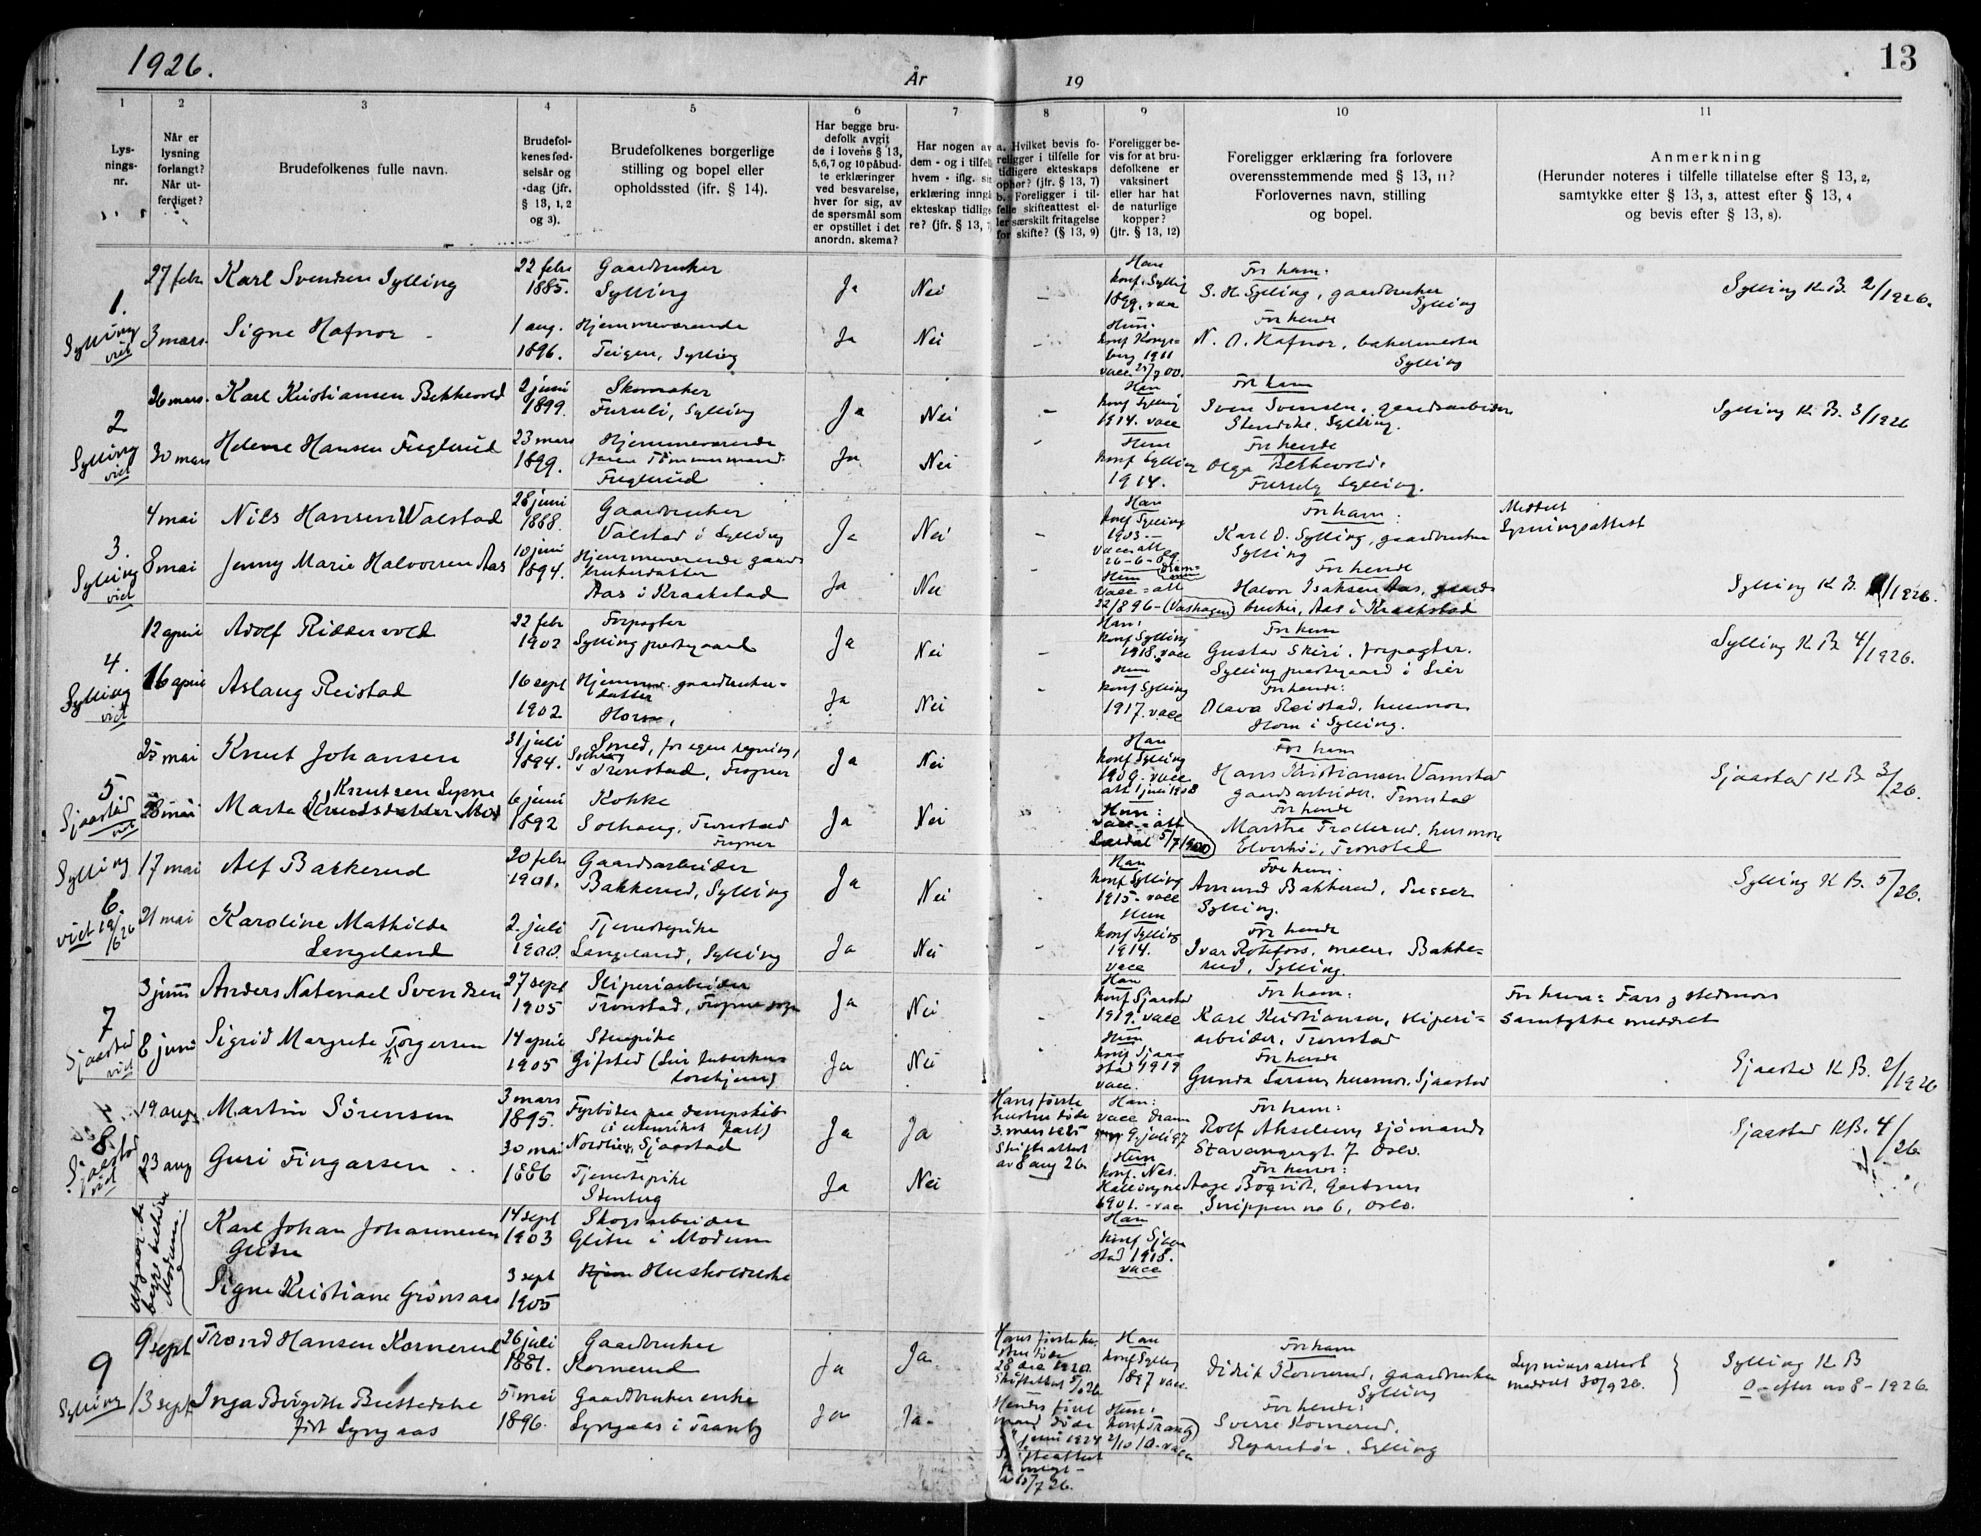 1926.
År
19
13
1
2
3
4
5
6
7
8
9
10
11
Lys-
nings-
nr.
Når er
lysning
forlangt?
Når ut-
ferdiget?
Brudefolkenes fulle navn.
Brudefol-
kenes fød-
selsår og
-dag (jfr.
§ 13, 1, 2
og 3).
Brudefolkenes borgerlige
stilling og bopel eller
opholdssted (jfr. § 14).
Har begge bru-
defolk avgit
de i lovens § 13,
5,6,7 og 10 påbud-
te erklæringer
ved besvarelse,
hver for sig, av
de spørsmål som
er opstillet i det
anordn. skema?
Har nogen av
dem - og i tilfelle
hvem - iflg. sin
erklæring inngå
ekteskap tidlige
re? (jfr. § 13, 7
a. Hvilket bevis fo-
religger i tilfelle for
tidligere ekteskaps
ophør? (jfr. § 13, 7)
b. Foreligger i til-
felle skifteattest el-
ler særskilt fritagelse
for skifte? (§ 13, 9)
Foreligger be-
vis for at bru-
defolkene er
vaksinert
eller har hat
de naturlige
kopper?
(jfr. § 13, 12)
Foreligger erklæring fra forlovere
overensstemmende med § 13, 11?
Forlovernes navn, stilling
og bopel.
Anmerkning
(Herunder noteres i tilfelle tillatelse efter § 13, 2,
samtykke efter § 13, 3, attest efter § 13, 4
og bevis efter § 13, 8).
1.
Sylling
viet
27 febr
Karl Svendsen Sylling
22 febr
1885.
Gaardbruker
Sylling
Ja
Nei
Han
konf. Sylling
1899. vacc
For ham:
S. H. Sylling, gaardbruker
Sylling
Sylling K B. 2/1926.
3 mars
Signe Hafnor
1 aug.
1896.
Hjemmeværende
Teigen, Sylling
Ja
Nei
Hun:
konf Kongs-
berg 1911
vacc.
For hende
N. O. Hafnor, bakermester
Sylling
2
Sylling
viet
26 mars.
Karl Kristiansen Bekkevold
2 juni
1899.
Skomaker
Furuli, Sylling
Ja
Nei
Han
konf Sylling
1914. vacc
For ham
Sven Svendsen, gaardsarbeider
Sylling.
Sylling K B. 3/1926
30 mars
Helene Hansen Fuglerud
23 mars
1899.
Hjemmeværende
Fuglerud
Ja
Nei
Hun
konf Sylling
1914.
For hende
Olga Bekkevold.
Furuly Sylling.
3.
Sylling
viet
4 mai
Nils Hansen Walstad
28 juni
1888.
Gaardbruker
Valstad i Sylling
Ja
Nei
Han
konf Sylling
1903.
vacc. att
For ham:
Karl O. Sylling, gaardbruker
Sylling
Meddelt
Lysningsattest
8 mai
Jenny Marie Halvorsen Aas
10 juni
1894.
Hjemmeværende gaard-
brukerdatter
Aas i Kraakstad
Ja
Nei
Hun
vacc=att
For hende
Halvor Isaksen Aas, gaard-
bruker, Aas i Kraakstad
Sylling K B. 1/1926.
4.
Sylling
viet
12 april
Adolf Riddervold
22 febr
1902
Forpagter
Sylling prestegaard
Ja
Nei
Han:
konf Sylling
1918. vacc
For ham
Gustav Skiri, forpagter.
Sylling prestegaard i Lier
Sylling K B 4/1926.
16 april
Aslaug Reistad
16 sept
1902
Hjemmev. gaardbruker-
datter
Horn,
Ja
Nei
Hun
konf Sylling
1917. vacc
For hende:
Olava Reistad, husmor
Horn i Sylling.
5
Sjaastad
viet
25 mai
Knut Johansen
31 juli
1894.
Smed, for egen regning,
Solhaug
Tronstad, Frogner
Ja
Nei
Han
konf Sylling
1909. vacc
att 1 juni 1908
For ham
Hans Kristiansen Vamstad
gaardsarbeider. Tronstad
Sjaastad K B 3/26.
28 mai
Marta Knudsdatter Moe
6 juni
1892
Kokke
Solhaug, Tronstad
Frogner
Ja
Nei
Hun:
vacc=att
5/7 1900
For hende
Martha Trollerud, husmor
Elverhöi, Tronstad
Sylling
6.
viet 19/6 26
17 mai
Alf Bakkerud
20 febr
1901.
Gaardsarbeider
Bakkerud, Sylling
Ja
Nei
Han
konf Sylling
1915. vacc
For ham.
Amund Bakkerud,
Sylling.
Sylling K B. 5/26.
21 mai
Karoline Mathilde
Lengeland
2. juli
1900.
Tjenestepike
Lengeland, Sylling
Ja
Nei
Hun
konf Sylling
1914.
vacc
For hende
Ivar Rotefors, maler, Bakke-
rud, Sylling.
7
Sjaastad
viet
3 juni
Anders Natanael Svendsen
27 sept
1905
Sliperiarbeider
Tronstad, Frogner sogn
Ja
Nei
Han
konf Sjaastad
1919. vacc
For ham:
Karl Kristiansen, sliperi-
arbeider, Tronstad
For ham: Fars og stedmors
samtykke meddelt
8 juni
Sigrid Margrete Torgersen
14 april
1905
Stuepike
Gifsted (Lier tuberku-
losehjem)
Ja
Nei
Hun
konf Sjaa-
stad 1919
vacc.
For hende
Gunda Larsen, husmor, Sjaastad
Sjaastad K B. 2/1926
8.
Sjaastad
viet
19 aug
Martin Sörensen
3 mars
1895.
Fyrböter paa dampskib
(i utenriks fart)
Nordlien, Sjaastad
Ja
Ja
Hans förste
hustru döde
3 mars 1925
Skifteattest
av 8 aug 26.
Han:
vacc Dram
9 juli 97
For ham:
Rolf Akselsen, sjömand
Stavangergt 7 Oslo.
Sjaastad KB. 4/26.
23 aug
Guri Fingarsen
30 mai
1886
Tjenestepike
Ja
Nei
Hun
konf. Nes.
Hallingdal
1901. - vacc
For henne:
Aage Boqvist, Gartner
Snippen no 6, Oslo.
Karl Johan Johannesen
14 sept
1903
Skogsarbeider
Glitre i Modum
Han
konf Sjaa-
stad 1918.
vacc
Signe Kristiane Grönsaas
3 sept
1905
Hjem Husholderske
9
Sylling
9 sept
Trond Hansen Kornerud
26 juli
1881.
Gaardbruker
Kornerud
Ja
Ja
Hans förste hu-
stru döde
28 des 1920.
Han
konf Sylling
1897 vacc.
For ham
Didrik Kornerud, gaardbruker
Sylling
Lysningsattest
meddelt 30/9 26.
Sylling K B
0 - efter no 8 - 1926.
13 sept
Inga Birgitte
född Lyngaas
5 mai
1896.
Gaardbruker enke
Lyngaas i Tranby
Ja
Ja.
Hendes förste
mand döde
juni 1924
Skifteattest
Hun:
konf Tranby
2/10 10. vacc
For hende:
Sverre Kornerud.
Reparatör, Sylling